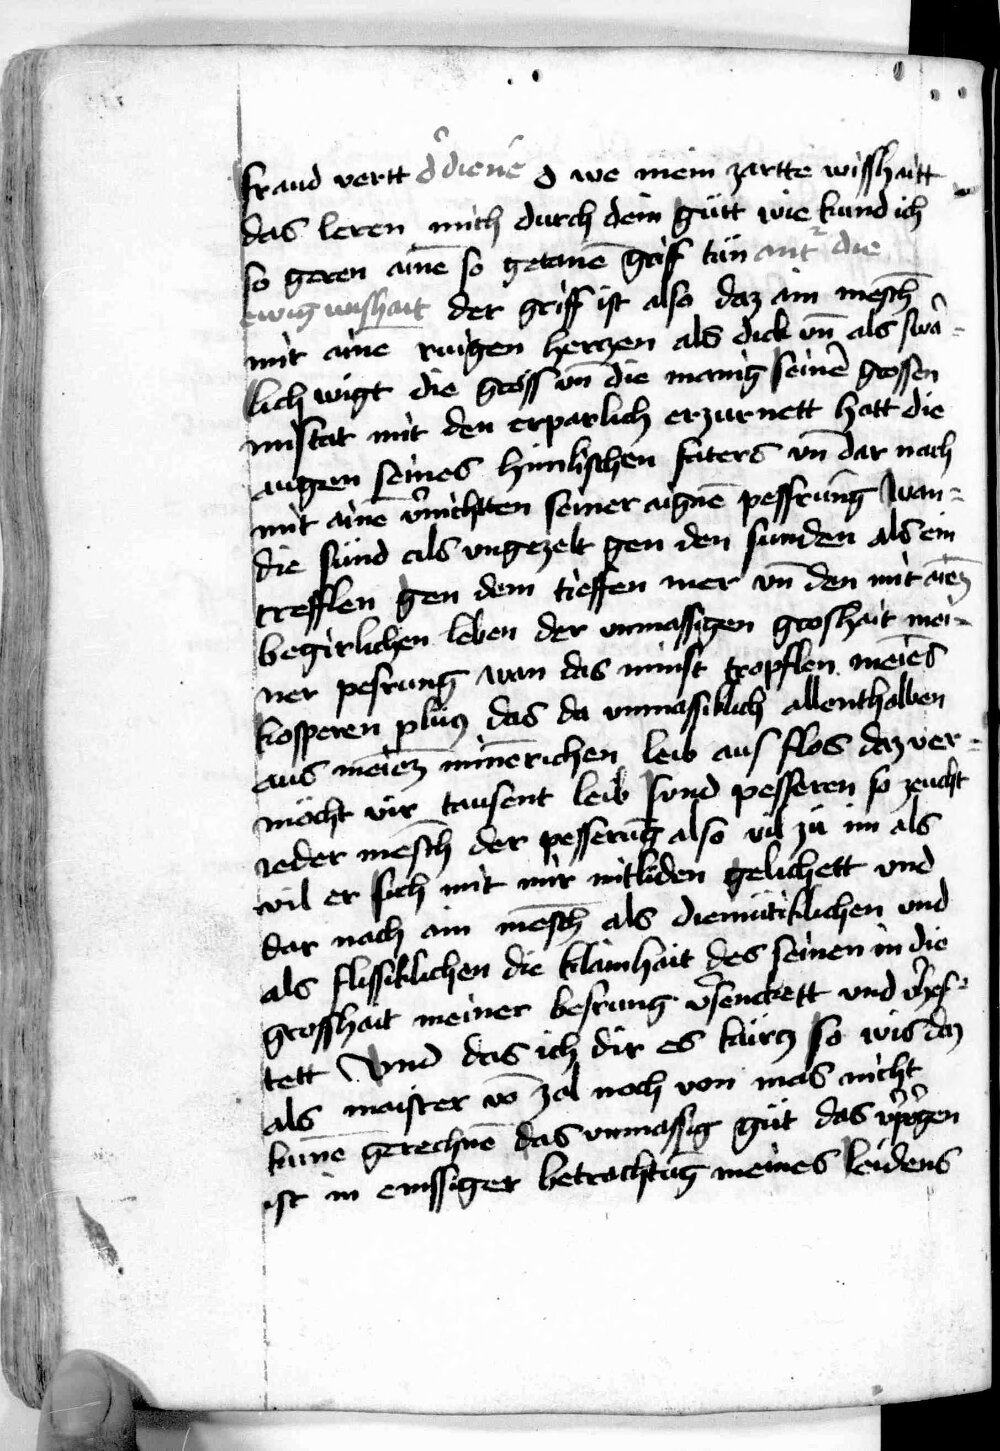 fraud vertt d̉ dienē o we mein zartte wisshaitt
das leren mich durch dein gu̍tt wie kund ich
so geren ainē so getanē griff tu̍n ant² die
ewig wishait der griff ist also daz ain mēsch
mit ainē ruigen herczen als dick vn̄ als swär-
lich wigt die gröss vn̄ die manig seinē grossen
mistat mit den erparlich erzurnett hatt die
augen seines himlischen faters vn̄ dar nach
mit ainē v̉nichtten seiner aignē pessrūng wan-
die sünd als vngezelt gen den sunden als ein
trefflen gen dem tieffen mer vn̄ den mit aiēz
begirlichen leben der vnmassigen groshait mei-
ner pesrung wan das minst tropflen meīēs
kosperen plu̍cz das da vnmassiklich allenthalben
aus meīēz minērichen leib aus flos daz ver-
möcht vir tausent leib sund pesseren so zeucht
ieder mēsch der pesserūng also vil zu̍ im als
vil er sich mit mir mitliden gelichett und
dar nach ain mēsch als diemütiklichen und
als flissiklichen die klainhait des seinen in die
grosshait meiner besrung v̉senckett und v̉hef-
tett Vnd das ich dir es kürcz so wis daz
als maister vō zal noch von mas nicht
kunnē gerechnē das vnmassig gu̍t das v̉porgen
ist in emssiger betrachtu̅g meines leidens